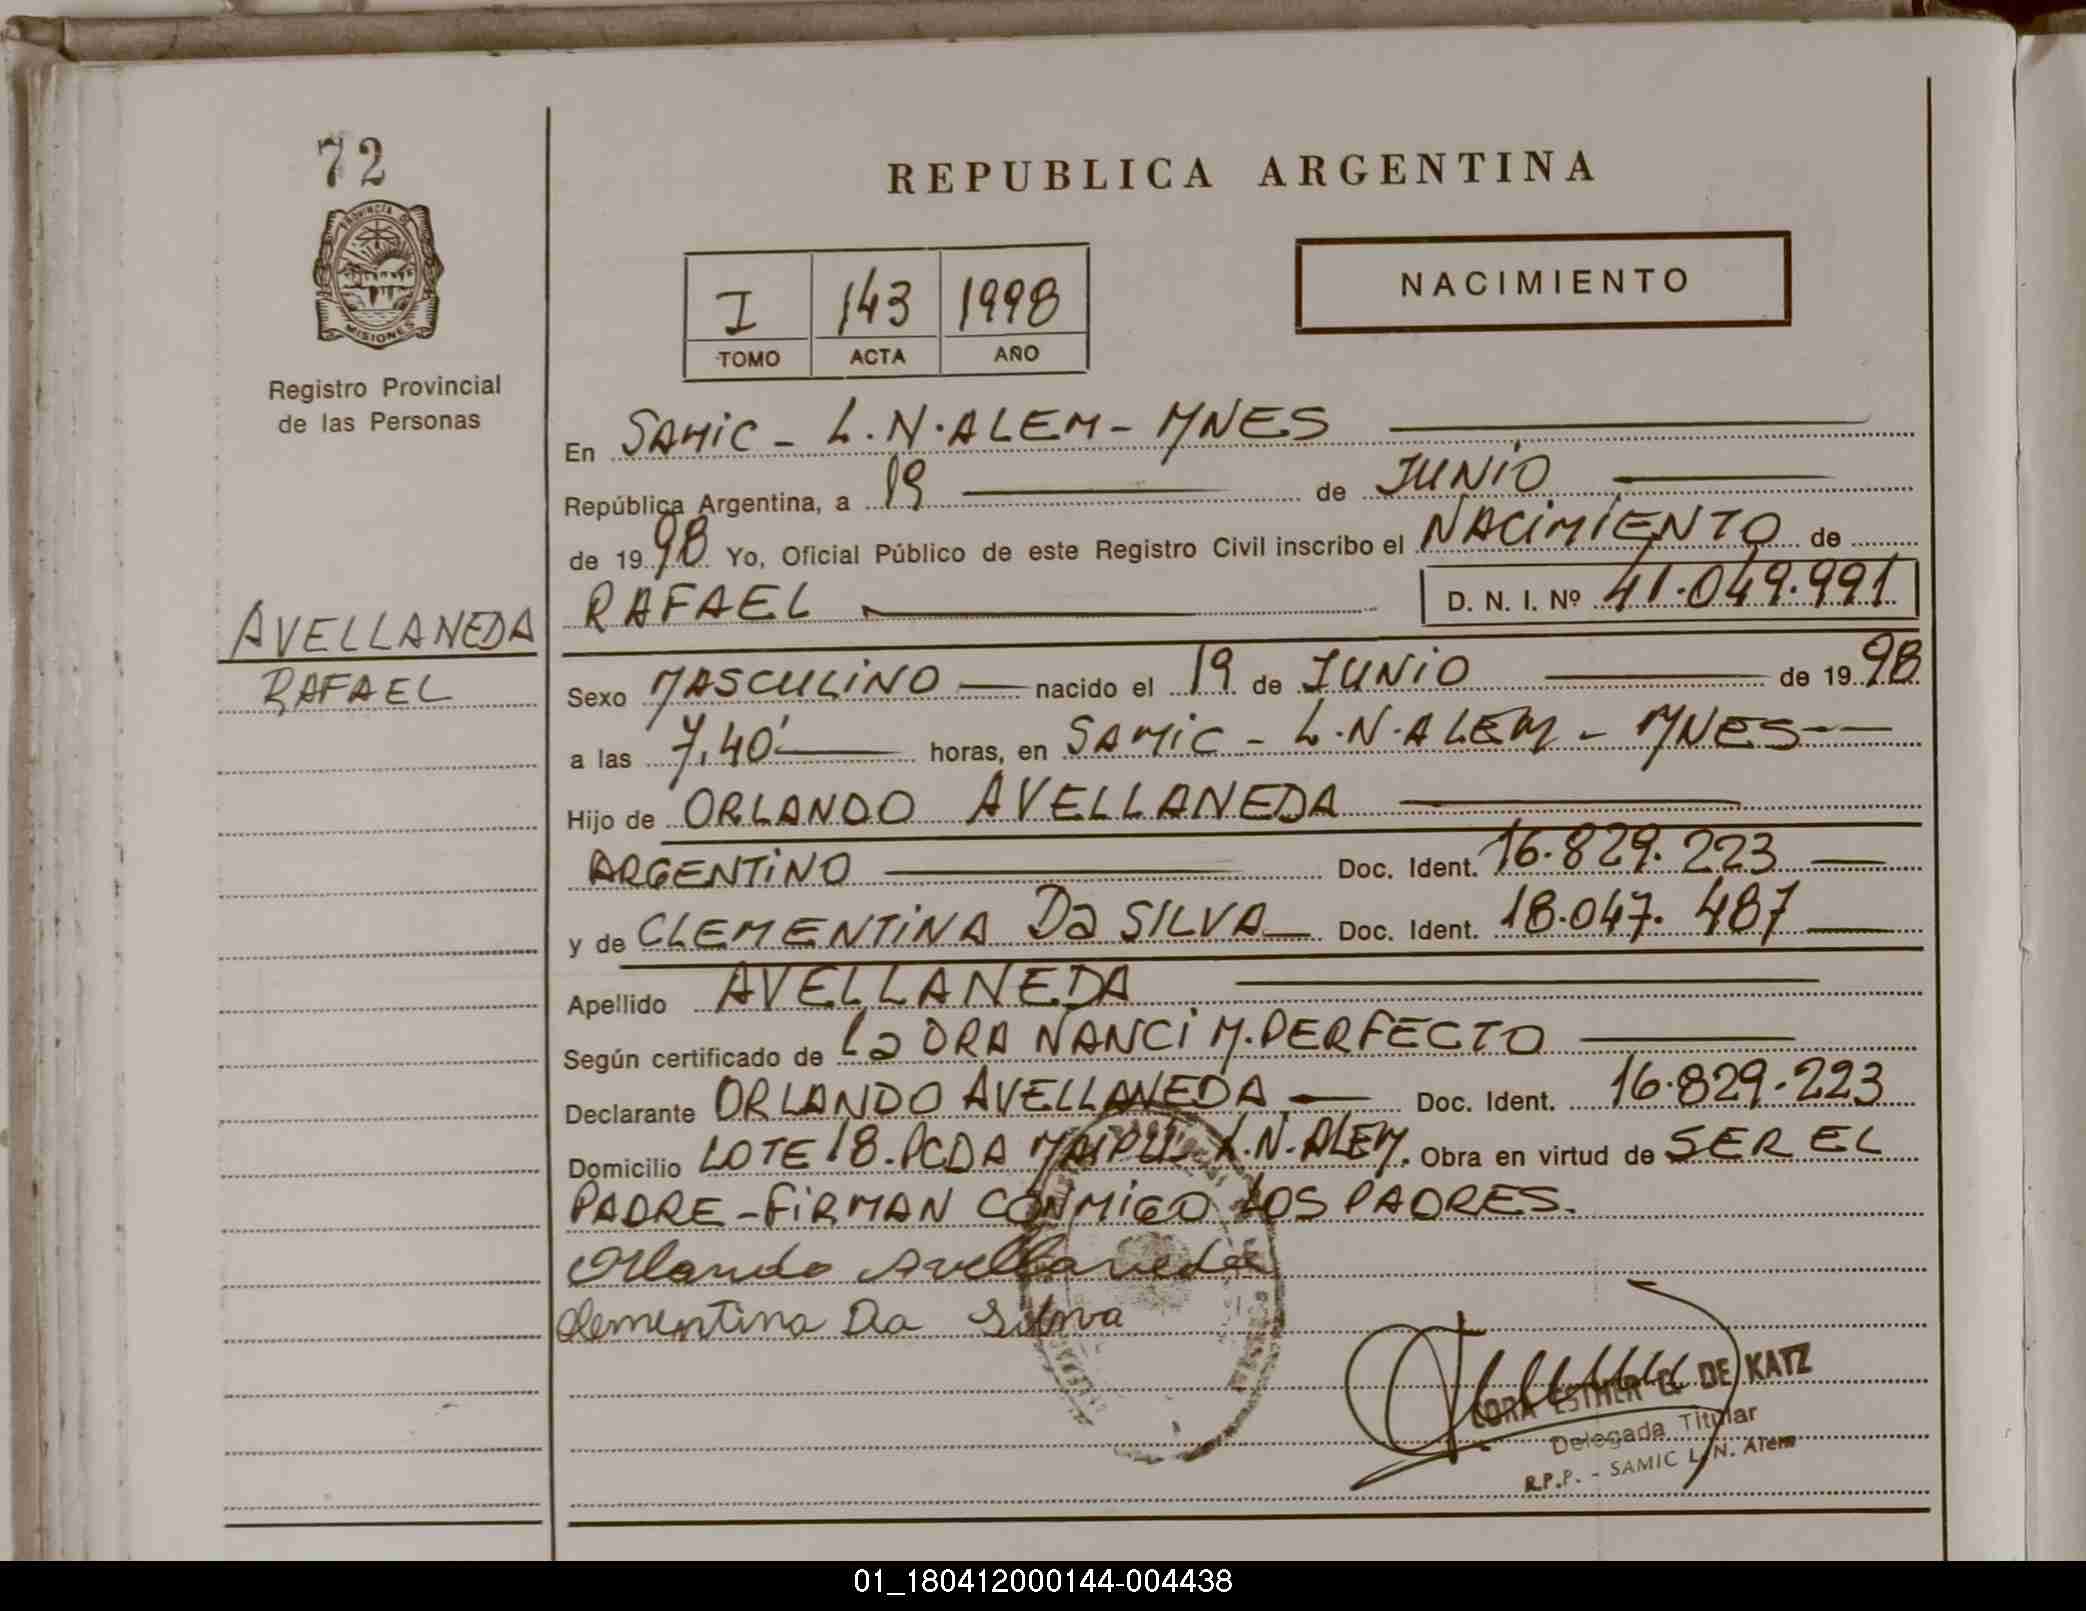 72
PROVINCIA DE
MISIONES
Registro Provincial
de las Personas
AVELLANEDA
RAFAEL
REPUBLICA ARGENTINA
I 143 1998
TOMO ACTA AÑO
NACIMIENTO
En SAMIC - L.N.ALEM - MNES
República Argentina, a 19 de JUNIO
de 1998 Yo, Oficial Público de este Registro Civil inscribo el NACIMIENTO de
RAFAEL D. N. I. Nº 41.049.991
Sexo MASCULINO nacido el 19 de JUNIO de 1998
a las 7,40' horas, en SAMIC - L.N.ALEM - MNES
Hijo de ORLANDO AVELLANEDA
ARGENTINO Doc. Ident. 16.829.223
y de CLEMENTINA Da SILVA Doc. Ident. 18.047.487
Apellido AVELLANEDA
Según certificado de La DRA NANCI M. PERFECTO
Declarante ORLANDO AVELLANEDA Doc. Ident. 16.829.223
Domicilio LOTE 18. PCDA MAIPU L.N.ALEM. Obra en virtud de SER EL
PADRE - FIRMAN CONMIGO LOS PADRES.
Orlando Avellaneda
Clementina Da Silva
CORA ESTHER G. DE KATZ
Delegada Titular
R.P.P. - SAMIC L. N. Alem
01_180412000144-004438